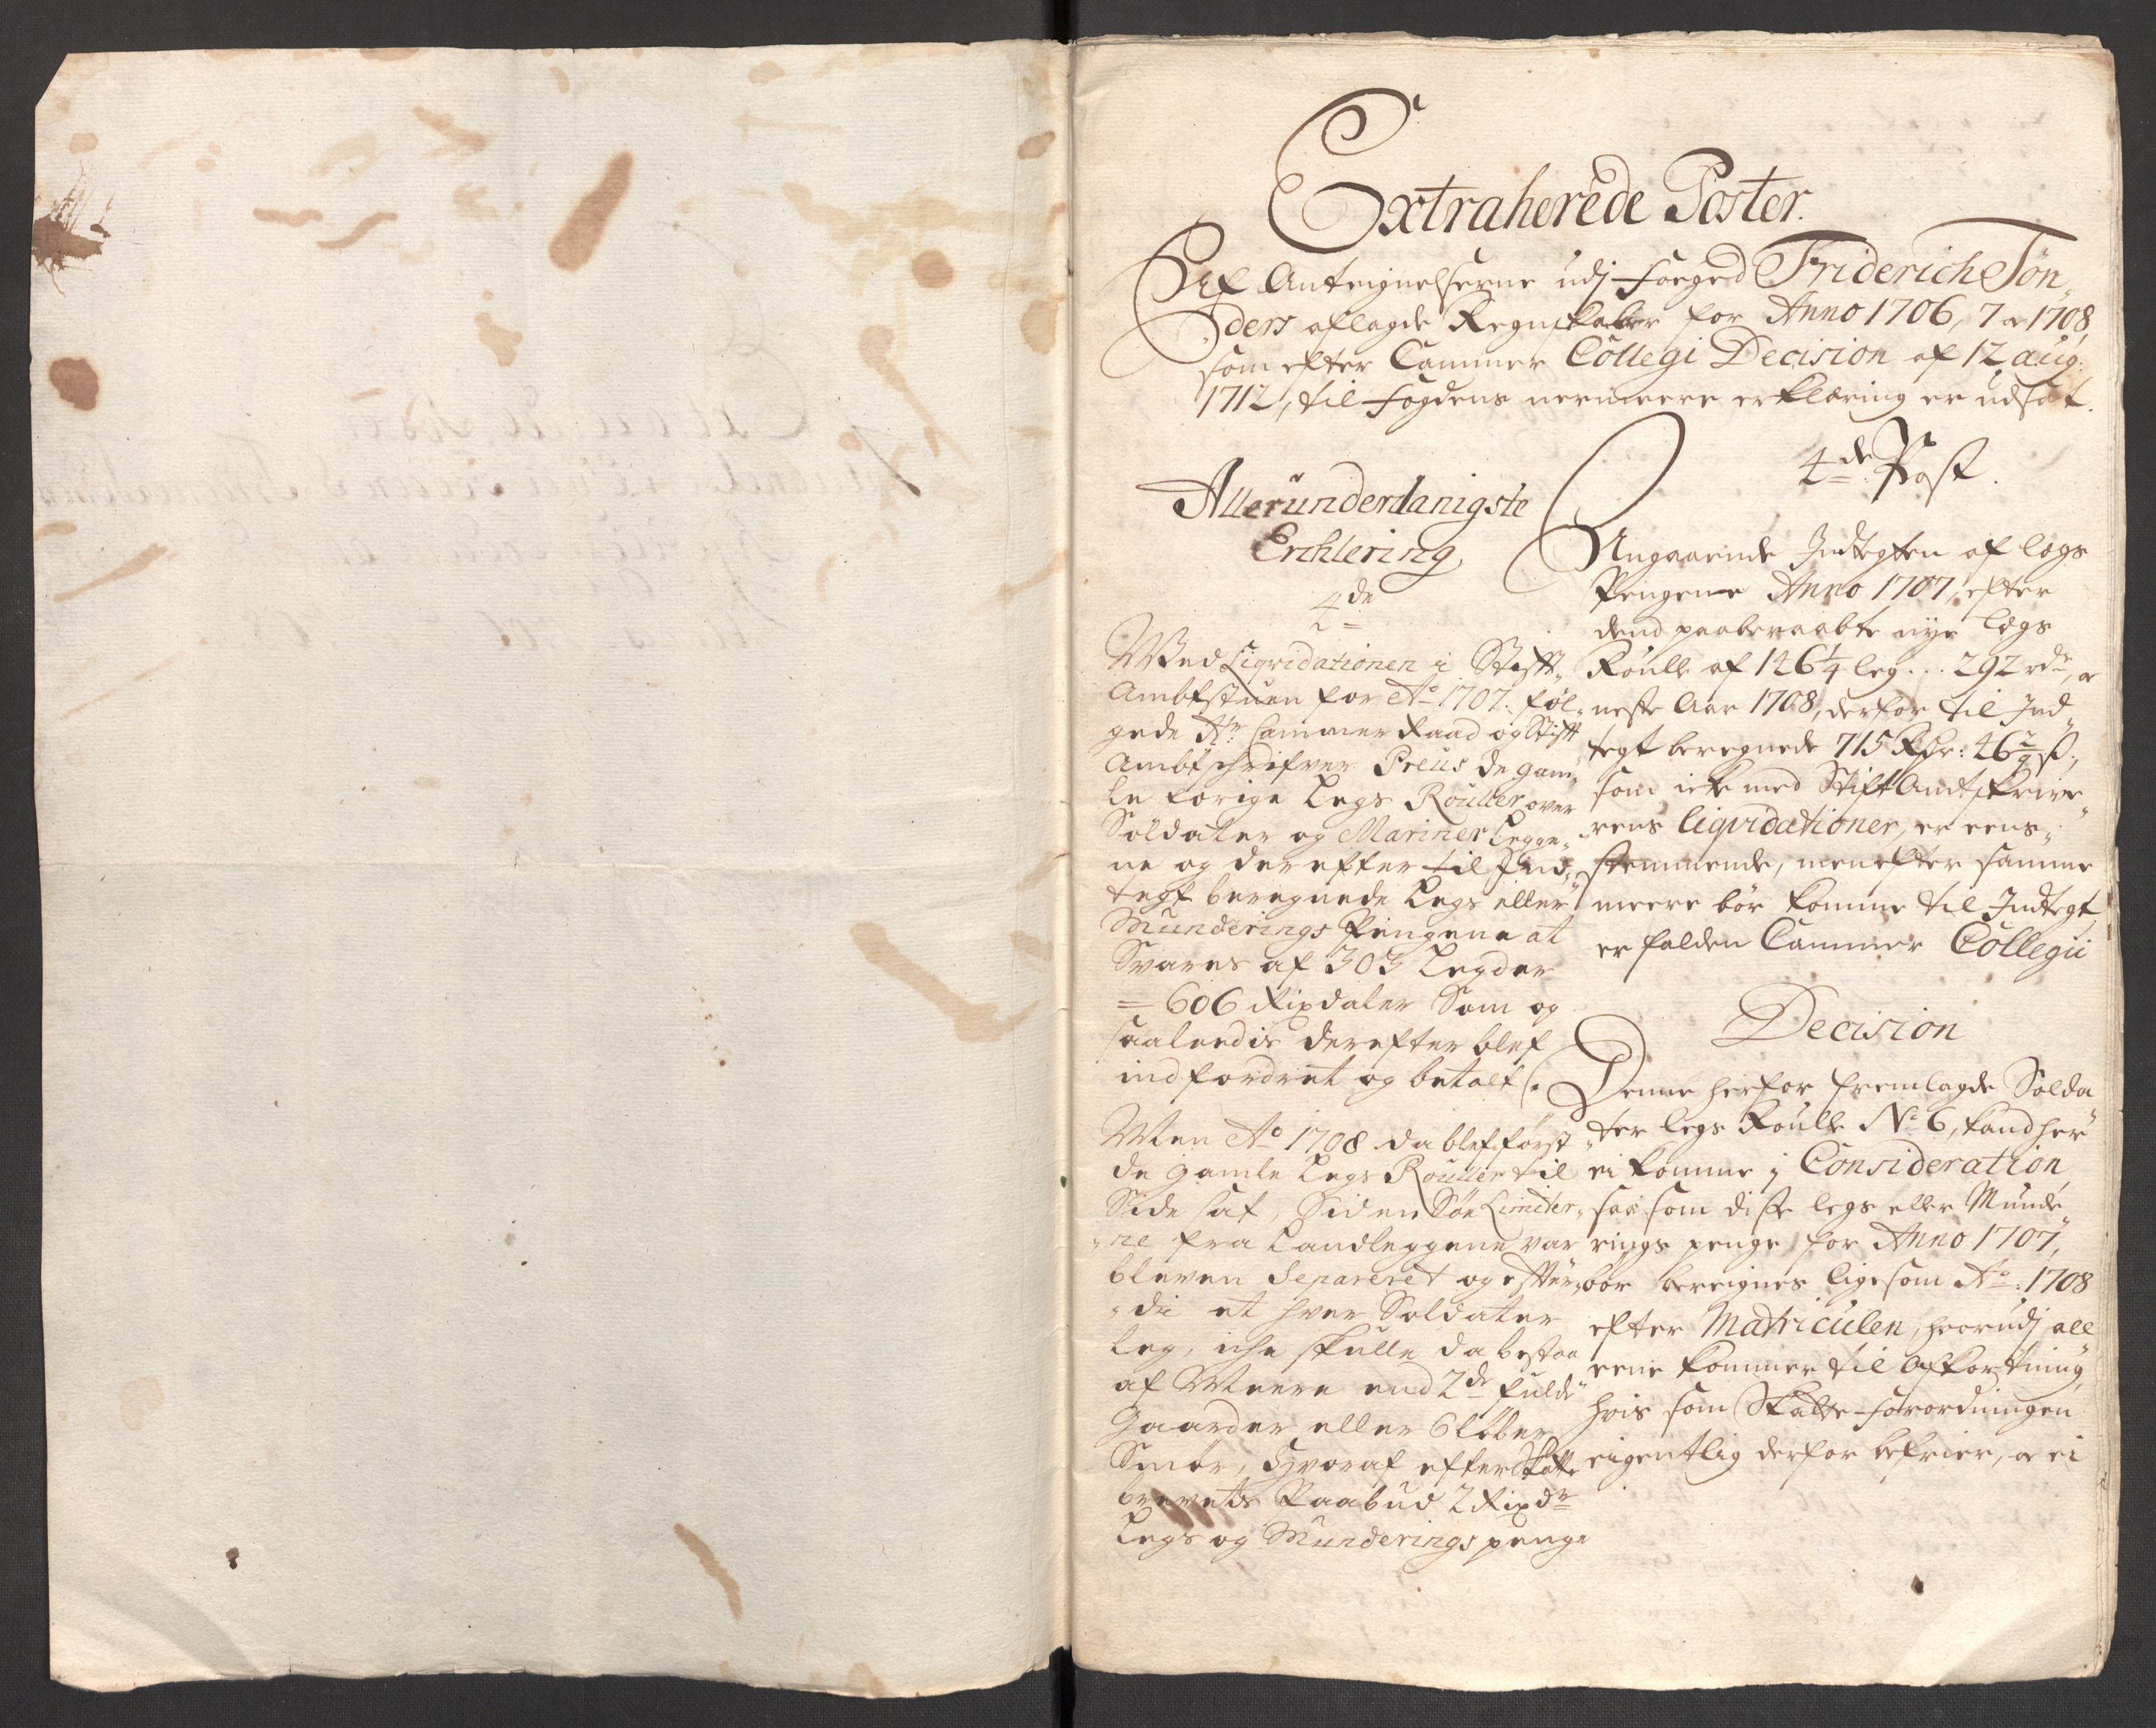 Extraherede Poster.
Af Anteignelserne udj Foeged Friderich Tön„
ders aflagde Regnskaber for Anno 1706, 7 & 1708,
som efter Cammer Collegi Decision af 12 aug:
1712, til Fogdens nermeere erklæring er udsat.
Allerunderdanigste
Erchlering
4de
Wed Liqvidationen i Stifft„
Ambtstuen for Ao 1707. føl„
gede Hr: Cammer Raad og Stifft
Ambtschrifver Preüs de gam„
le forige Legs Roüller over
Soldater og Mariner Legge„
ne og derefter til Ind„
tegt beregnede Legs eller
Munderings Pengene at
Svares af 303 Legder
= 606 Rixdaler Som og
saaleedis derefter blef
indfordret og betalt /.
Men Ao 1708 da blef først
de gamle Legs Roüller til
Side sat, Siden Söe Limiter„
„ne fra Landleggene var
bleven Separeret og efter„
„di et hver Soldater
leg, iche skulle da bestaa
af Meere end 2de fulde
Gaarder eller 6 Løber
Smør, Hvoraf efter Skatte
brevets Paabud 2 Rixdr
Legs og Munderings penge
4de Post.
Angaaende Indtegten af legs
Pengene Anno 1707, efter
dend paaberaabte nye Legs
Roulle af 146¼ leg... 292 rdr, &
neste Aar 1708, derfor til Ind„
tegt beregnede 715 Rdr: 46 2/7 ß,
som icke med Stift Amtskrive„
rens liqvidationer, er eens„
stemmende, men efter samme
meere bør komme til Indtegt,
er falden Cammer Collegii
Decision
Denne herfor fremlagde Solda
„ter legs Roulle No 6, kand her
ei komme i Consideration,
saasom disse legs eller Munde„
rings penge for Anno 1707,
bør bereignes ligesom Ao: 1708
efter Matriculen, hvorudj all
eene kommer til Afkortning,
hvis som Skatte-forordningen
eigentlig derfor befrier, & ei